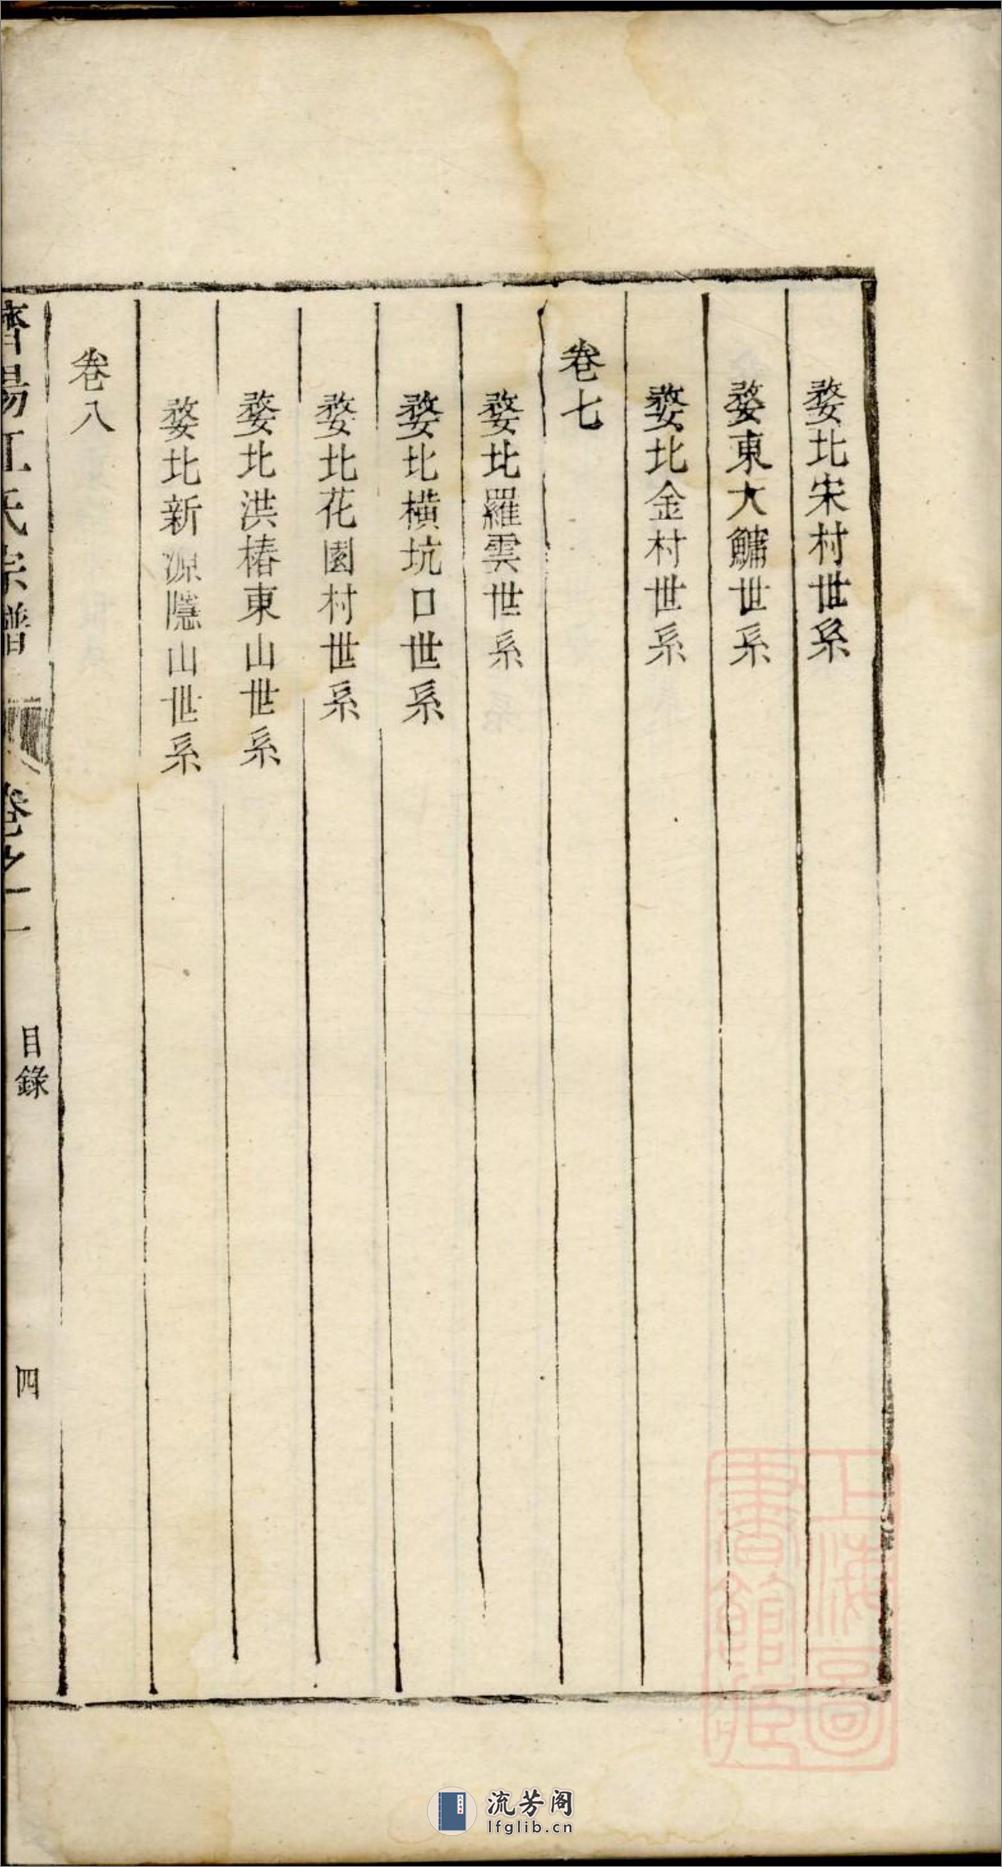 婺北宋村世系
婺東大鱅世系
婺北金村世系
卷七
婺北羅雲世系
婺北橫坑口世系
婺北花園村世系
婺北洪椿東山世系
婺北新源隱山世系
卷八
濟陽江氏宗譜 卷之一 目錄 四
上海圖書館藏
流芳阁
lfglib.cn